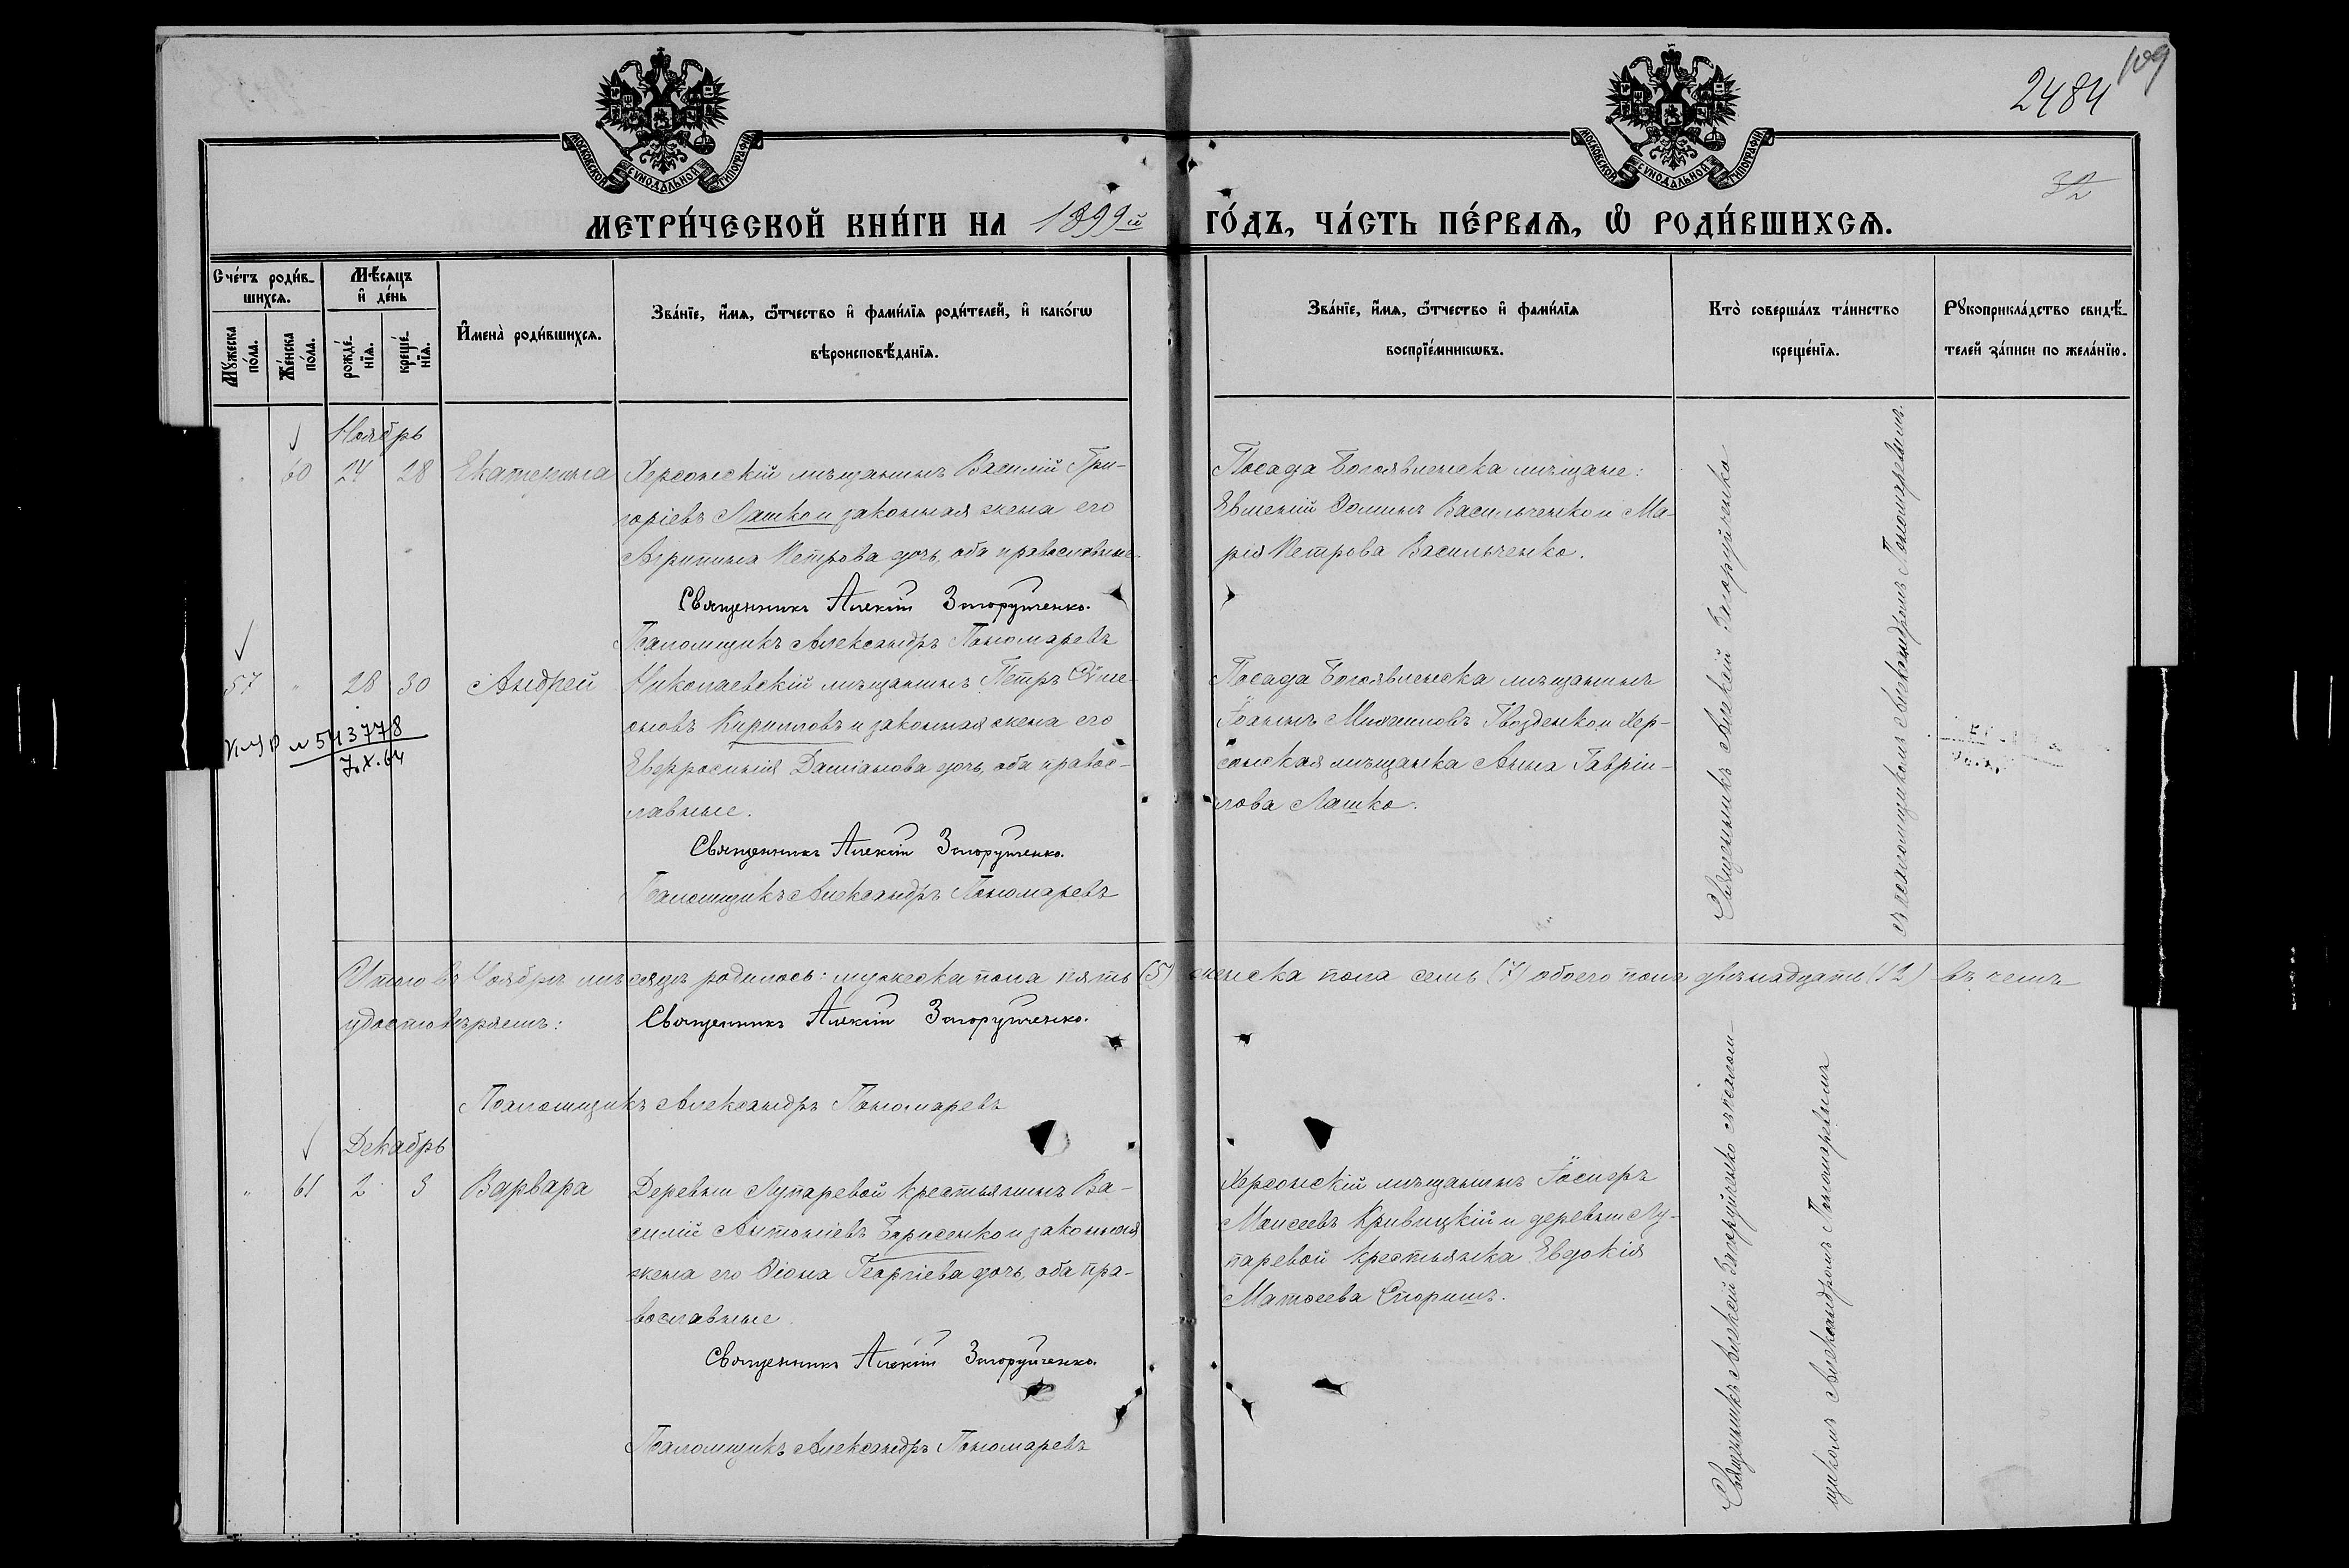 109
2484
32
МОСКОВСКОЙ СѴНОДАЛЬНОЙ ТИПОГРАФІИ
МОСКОВСКОЙ СѴНОДАЛЬНОЙ ТИПОГРАФІИ
МЕТРИ́ЧЕСКОЙ КНИ́ГИ НА 1899й ГО́ДЪ, ЧА́СТЬ ПЕ́РВАѦ, Ѡ҆ РОДИ́ВШИХСѦ.
Сче́тъ роди́в-
шихсѧ.
Мѣ́сѧцъ
и҆ де́нь
Мꙋ́жеска
по́ла.
Же́нска
по́ла.
рожде́-
нїѧ.
креще́-
нїѧ.
И҆мена̀ роди́вшихсѧ.
Зва́нїе, и҆́мѧ, ѻ҆́тчество и҆ фами́лїѧ роди́телей, и҆ како́гѡ
вѣроисповѣ́данїѧ.
Зва́нїе, и҆́мѧ, ѻ҆́тчество и҆ фами́лїѧ
воспрїе́мникѡвъ.
Кто̀ соверша́лъ та́инство
креще́нїѧ.
Рꙋкоприкла́дство свидѣ́-
телей за́писи по жела́нїю.
Ноябрь
" 60 24 28 Екатерина
Херсонскій мѣщанинъ Василій Гри-
горіевъ Лашко и законная жена его
Агрипина Петрова дочь, оба православные.
Священникъ Алексій Загоруйченко.
Псаломщикъ Александръ Пономаревъ
Посада Богоявленска мѣщане:
Евменій Фоминъ Васильченко и Ма-
рія Петрова Васильченко.
Священникъ Алексій Загоруйченко
съ псаломщикомъ Александромъ Пономаревымъ.
57 " 28 30 Андрей
№ 543778
7.X.64
Николаевскій мѣщанинъ Петръ Симе-
оновъ Кирилловъ и законная жена его
Евфросинія Даміанова дочь, оба правос-
лавные.
Священникъ Алексій Загоруйченко.
Псаломщикъ Александръ Пономаревъ
Посада Богоявленска мѣщанинъ
Іоаннъ Михаиловъ Гвозденко и Хер-
сонская мѣщанка Анна Гавріи-
лова Лашко.
Итого въ Ноябрѣ мѣсяцѣ родилось: мужеска пола пять (5) женска пола семь (7) обоего пола двѣнадцать (12) въ чемъ
удостовѣряемъ:
Священникъ Алексій Загоруйченко.
Псаломщикъ Александръ Пономаревъ
Декабрь
" 61 2 3 Варвара
Деревни Лупаревой крестьянинъ Ва-
силій Антоніевъ Борисенко и законная
жена его Ѳіона Георгіева дочь, оба пра-
вославные.
Священникъ Алексій Загоруйченко.
Псаломщикъ Александръ Пономаревъ
Херсонскій мѣщанинъ Іосифъ
Моисеевъ Кривицкій и деревни Лу-
паревой крестьянка Евдокія
Матѳеева Споришъ.
Священникъ Алексій Загоруйченко съ псалом-
щикомъ Александромъ Пономаревымъ